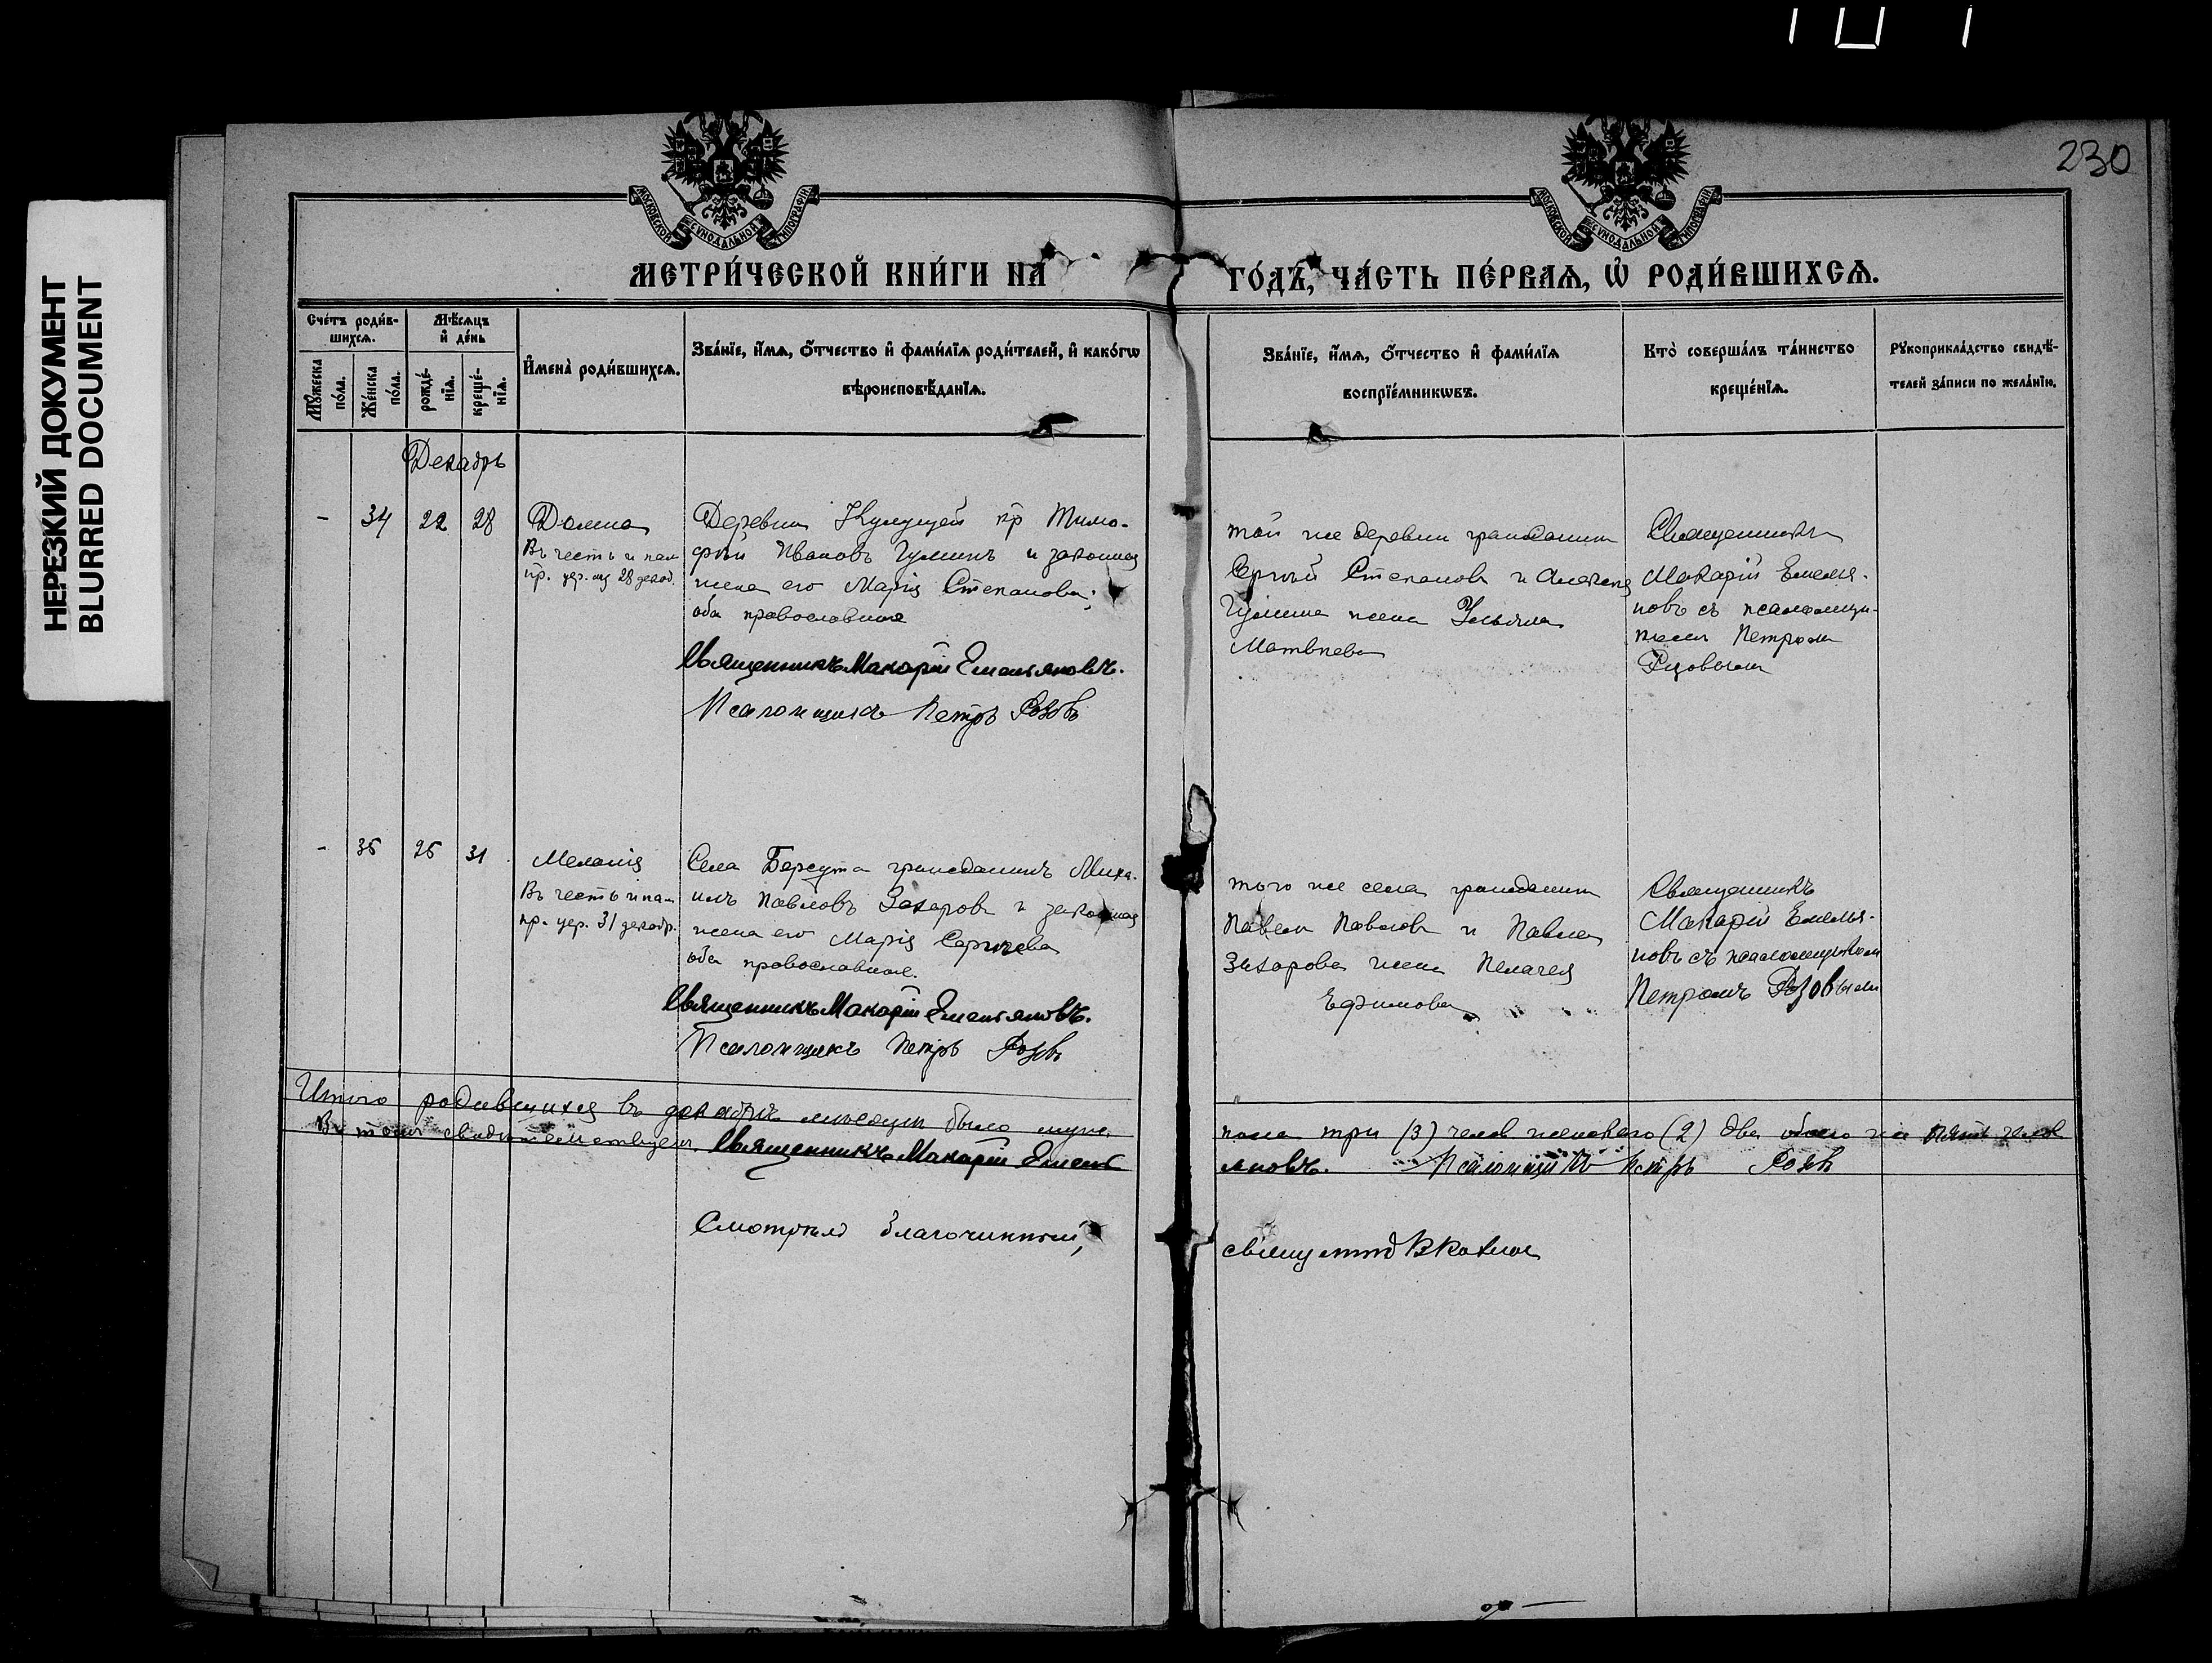 НЕРЕЗКИЙ ДОКУМЕНТ
BLURRED DOCUMENT
230
МОСКОВСКОЙ СѴНОДАЛЬНОЙ ТИПОГРАФІИ
МОСКОВСКОЙ СѴНОДАЛЬНОЙ ТИПОГРАФІИ
МЕТРИ́ЧЕСКОЙ КНИ́ГИ НА
ГО́ДЪ, ЧА́СТЬ ПЕ́РВАѦ, Ѡ҆ РОДИ́ВШИХСѦ.
Сче́тъ роди́в-
шихсѧ.
Мꙋ́жеска по́ла.
Же́нска по́ла.
Мѣ́сѧцъ
и҆ де́нь
рожде́-
нїѧ.
креще́-
нїѧ.
И҆мена̀ роди́вшихсѧ.
Зва́нїе, и҆́мѧ, ѻ҆́тчество и҆ фами́лїѧ роди́телей, и҆ како́гѡ
вѣроисповѣ́данїѧ.
Зва́нїе, и҆́мѧ, ѻ҆́тчество и҆ фами́лїѧ
воспрїе́мникѡвъ.
Кто̀ соверша́лъ та́инство
креще́нїѧ.
Рꙋкоприкла́дство свидѣ́-
телей за́писи по жела́нїю.
Декабрь
- 34 22 28 Домна
Въ честь и пам
пр. цер. 28 декаб.
Деревни гр Тимо-
фей Ивановъ и законная
жена его Марія Степанова;
оба православные
Священникъ Макарій Емельяновъ.
Псаломщикъ Петръ Розовъ
той же деревни гражданин
Сергѣй Степанов и Алексѣя
жена Ульяна
Матвѣева
Священникъ
Макарій Емелья-
новъ съ псаломщи-
комъ Петромъ
Розовымъ
- 35 25 31 Меланія
Въ честь и пам
пр. цер. 31 декабр.
Села Берсута гражданинъ Миха-
илъ Павловъ Захаровъ и законная
жена его Марія Сергѣева
оба православные.
Священникъ Макарій Емельяновъ.
Псаломщикъ Петръ Розовъ
того же села гражданин
Павел Павлов и Павла
Захарова жена Пелагея
Ефимова
Священникъ
Макарій Емелья-
новъ съ псаломщикомъ
Петромъ Розовымъ
Итого родившихся въ декабрѣ мѣсяцѣ было муж.
пола три (3) челов женского (2) два обоего пять челов
Въ томъ свидѣтельствуемъ. Священникъ Макарій Емель
яновъ. Псаломщикъ Петръ Розовъ
Смотрѣлъ благочинный,